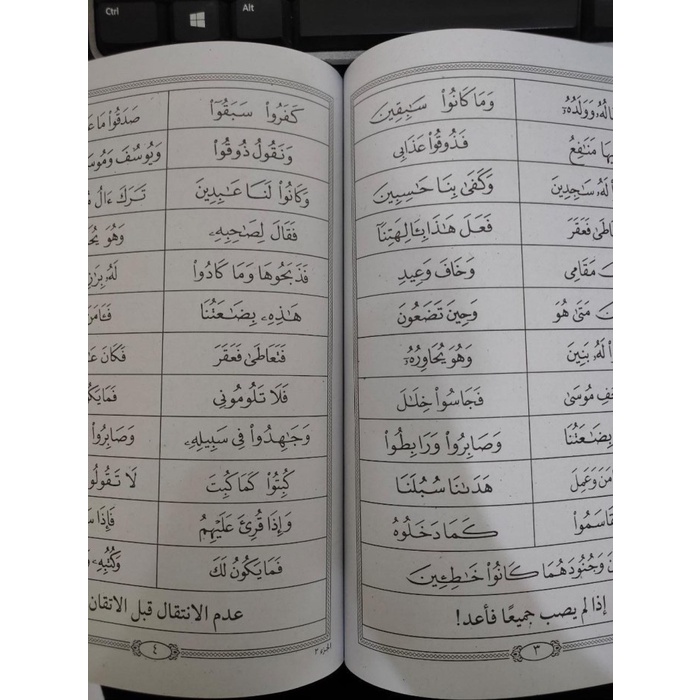 Ctrl
Alt
وَوَلَدُهُۥ وَمَا كَانُوا۟ سَـٰبِقِينَ
مَنَـٰفِعُ فَذُوقُوا۟ عَذَابِى
لَهُۥ سَـٰجِدِينَ وَكَفَىٰ بِنَا حَـٰسِبِينَ
فَعَقَرَ فَعَلَ هَـٰذَا بِـَٔالِهَتِنَآ
مَقَامِى وَخَافَ وَعِيدِ
مَتَىٰ هُوَ وَحِينَ تَضَعُونَ
لَهُۥ بَنِينَ وَهُوَ يُحَاوِرُهُۥٓ
مُوسَىٰ فَجَاسُوا۟ خِلَـٰلَ
بِضَـٰعَتُنَا وَصَابِرُوا۟ وَرَابِطُوا۟
وَعَمِلَ هَدَىٰنَا سُبُلَنَا
كَمَا دَخَلُوهُ
وَجُنُودَهُمَا كَانُوا۟ خَـٰطِـِٔينَ
إذا لم يصب جميعًا فأعد!
٣
كَفَرُوا۟ سَبَقُوٓا۟ صَدَقُوا۟ مَا
وَنَقُولُ ذُوقُوا۟ وَيُوسُفَ
وَكَانُوا۟ لَنَا عَـٰبِدِينَ تَرَكَ ءَالُ
فَقَالَ لِصَـٰحِبِهِۦ وَهُوَ
فَذَبَحُوهَا وَمَا كَادُوا۟ لَهُۥ
هَـٰذِهِۦ بِضَـٰعَتُنَا
فَتَعَاطَىٰ فَعَقَرَ فَكَانَ
فَلَا تَلُومُونِى
وَجَـٰهِدُوا۟ فِى سَبِيلِهِۦ وَصَابِرُوا۟
كُبِتُوا۟ كَمَا كُبِتَ لَا
وَإِذَا قُرِئَ عَلَيْهِمُ فَإِذَا
فَمَا يَكُونُ لَكَ وَكُتُبِهِۦ
عدم الانتقال قبل الاتقان
٤